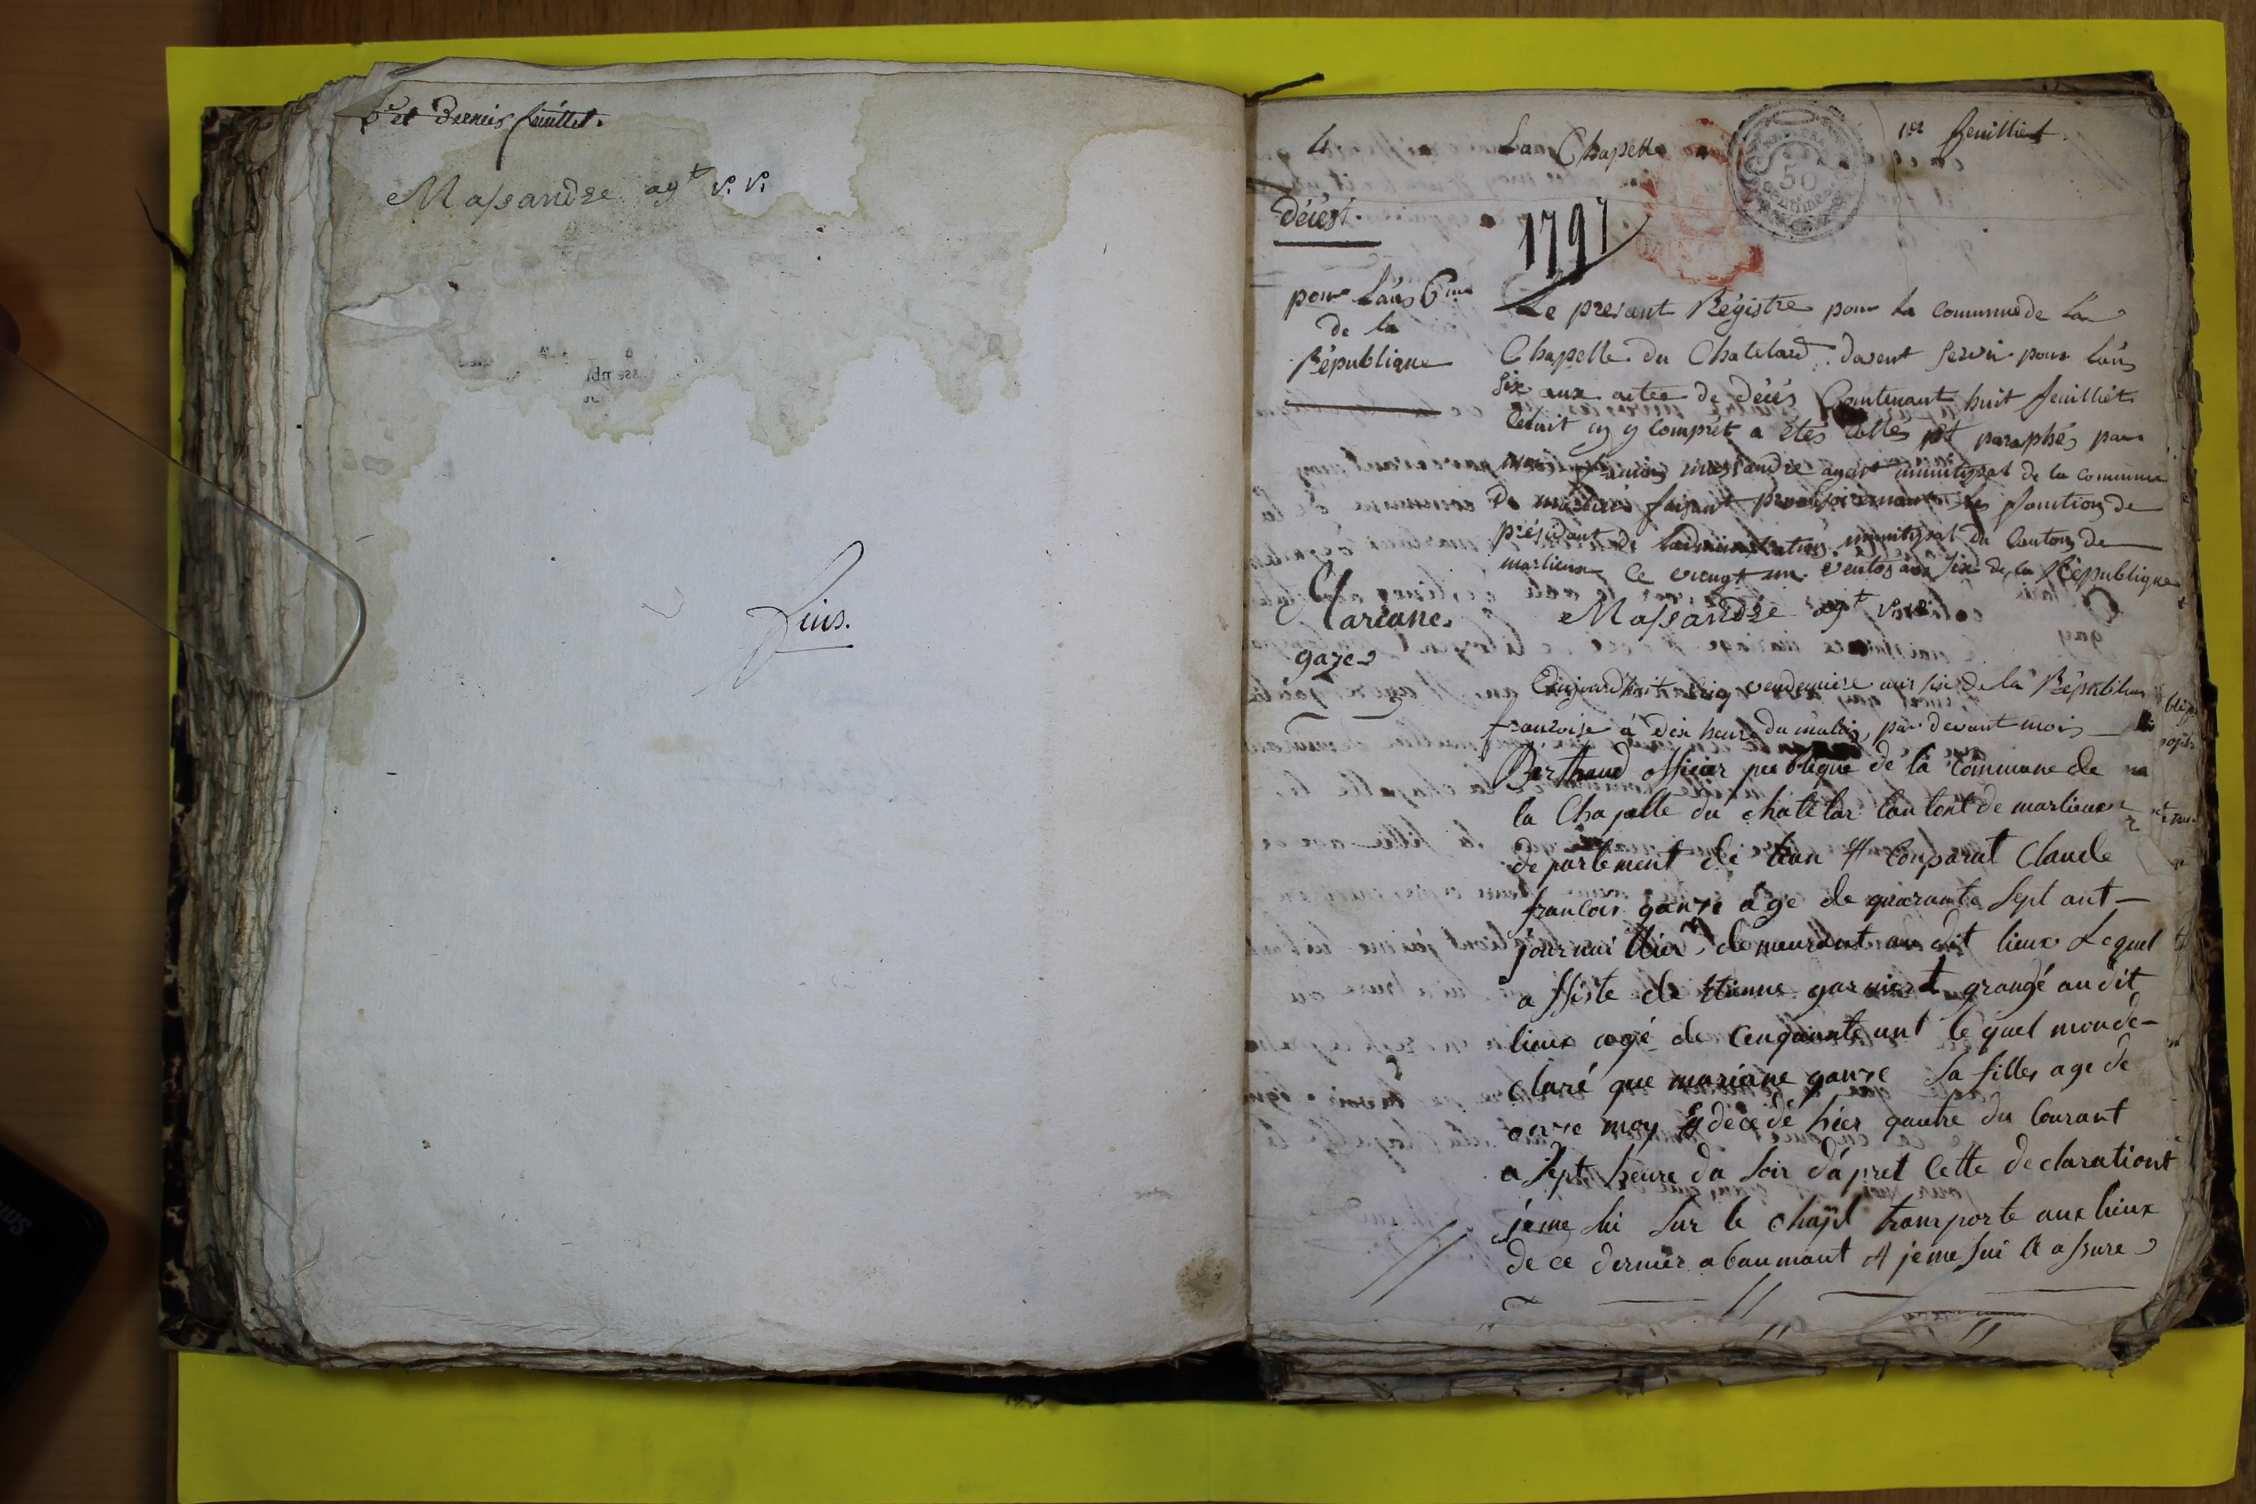 et Dernier feuillet.
Massandre agt v. v.
fins.
4
La Chapelle
1er feuillet
50
Centimes
Décest.
1797
pour Lans 6me
de la
République
Le present Régistre pour la commune de La
Chapelle du Chatelard. devent servir pour Lans
six aux actes de Décés Contenant huit feuilliets
Celuit cy y comprét a étés cottés et paraphés par
massandre agent municipal de la commune
de marlieux faisant provisoirement les fonctions de
présidant de Ladministration municipal du Canton de
marlieux Ce viengt un ventos ans six de la République
Massandre agt v. v.
Mariane
gaze
Aujourdhuit cinq vendemiere ans six de la Républic
francoise à dix heure du matin, par devant mois
Berthaud officier publique de la commune de
la Chapelle du chatelar Cantont de marlieux
departement de lean est Conparut Claude
francois ganze age de quarante sept ant
journailier demeurent au dit lieux Lequel
assiste de Etienne garnierd grangé audit
lieux agé de Cenquante ant le quel mon de-
claré que mariane ganze sa filles age de
onze moy décedé hier quatre du Courant
a sept heure du soir dápret Cette declarationt
je me sui sur le chanp transporte aux lieux
de ce dernier abaumont et je me sui assure